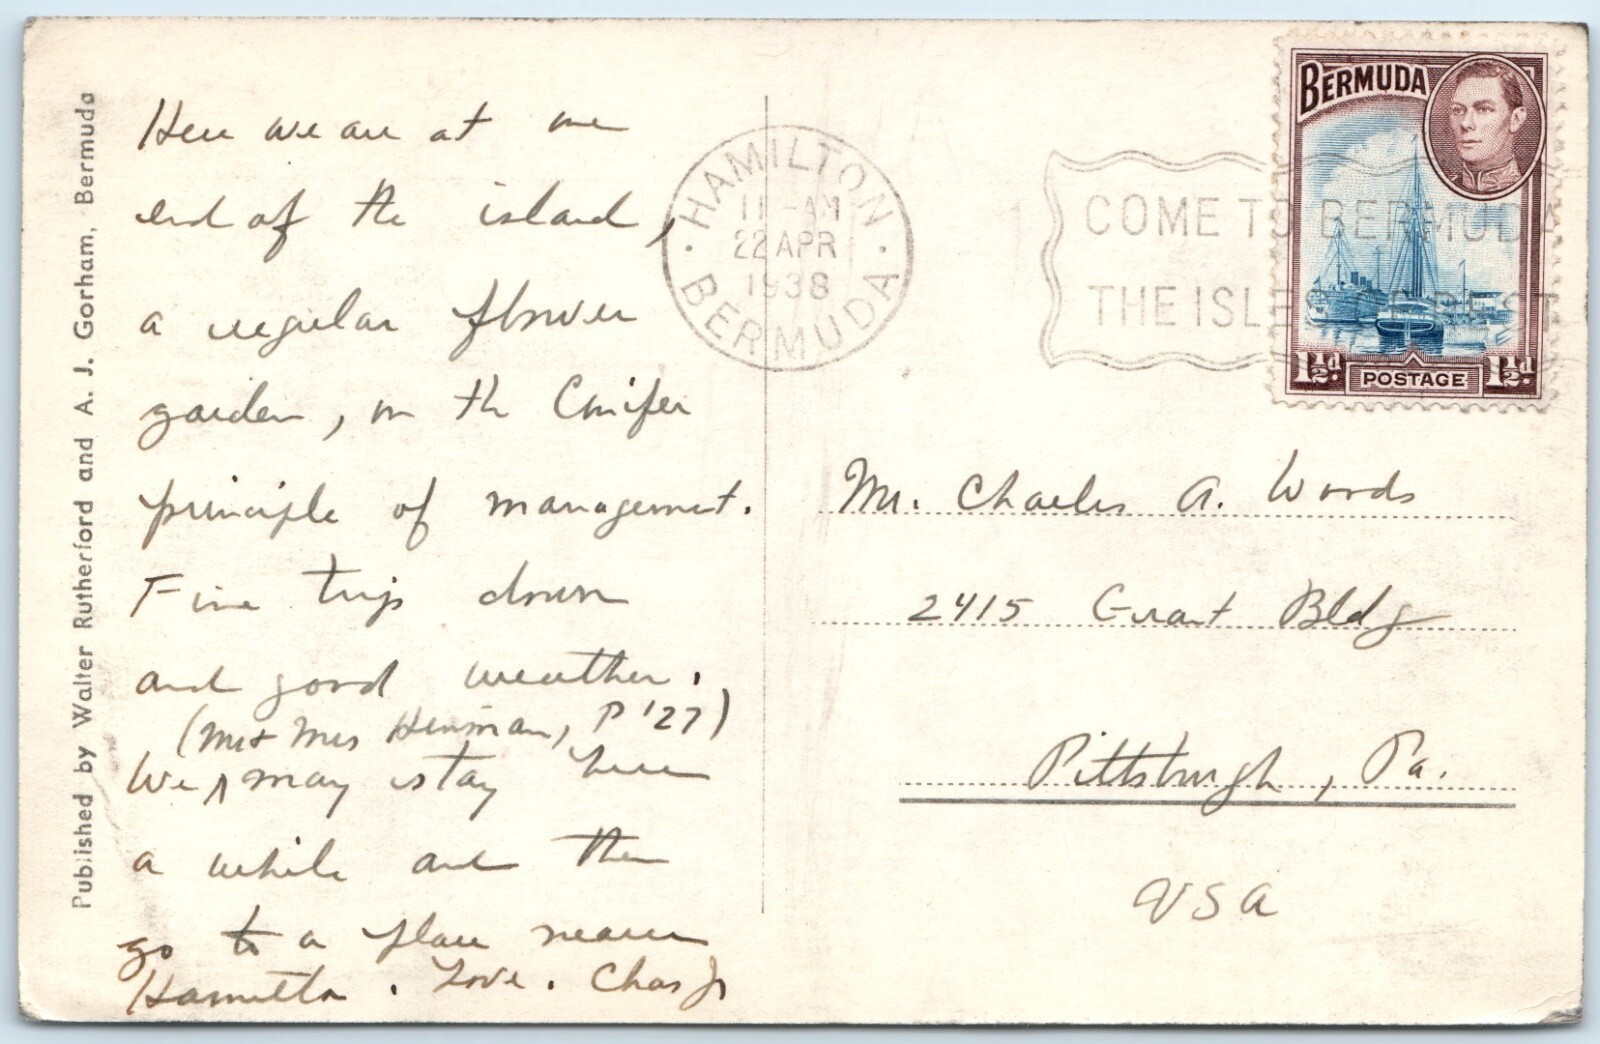 Published by Walter Rutherford and A. J. Gorham, Bermuda
Here we are at one
end of the island,
a regular flower
garden, on the Conifer
principle of management.
Fine trip down
and good weather.
(Mr & Mrs Hinman, P '27)
We ^ may stay here
a while and then
go to a place nearer
Hamilton. Love. Chas Jr
HAMILTON
11-AM
22 APR
1938
BERMUDA
COME TO BERMUDA
THE ISLES OF REST
BERMUDA
1½d POSTAGE 1½d
Mr. Charles A. Woods
2415 Grant Bldg
Pittsburgh, Pa.
USA